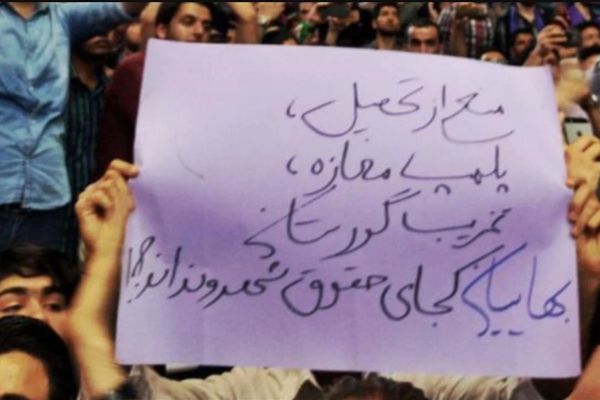 منع از تحصیل،
پلمپ مغازه،
تخریب گورستان
بهاییان کجای حقوق شهروندند؟!